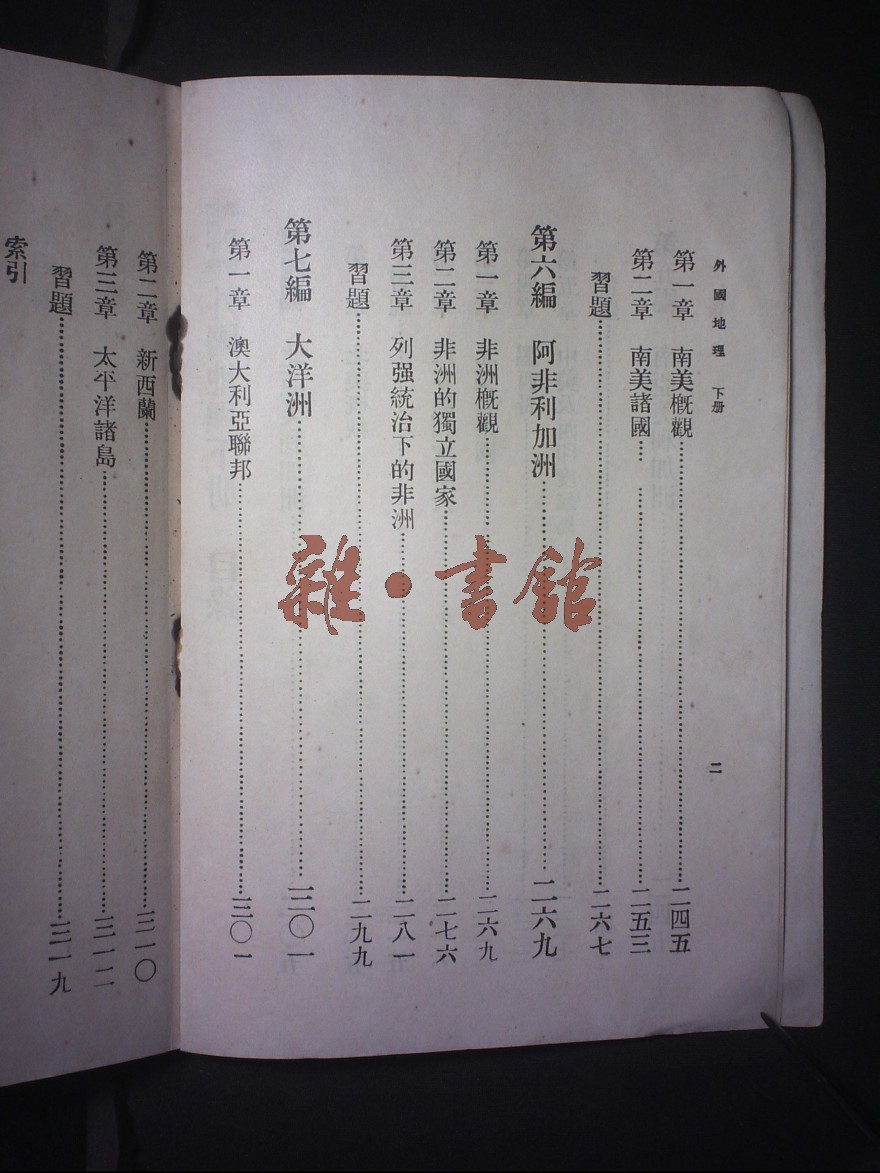 外國地理 下册
二
第一章 南美概觀……二四五
第二章 南美諸國……二五三
習題……二六七
第六編 阿非利加洲……二六九
第一章 非洲概觀……二六九
第二章 非洲的獨立國家……二七六
第三章 列强統治下的非洲……二八一
習題……二九九
第七編 大洋洲……三〇一
第一章 澳大利亞聯邦……三〇一
第二章 新西蘭……三一〇
第三章 太平洋諸島……三一二
習題……三一九
索引
雜·書館